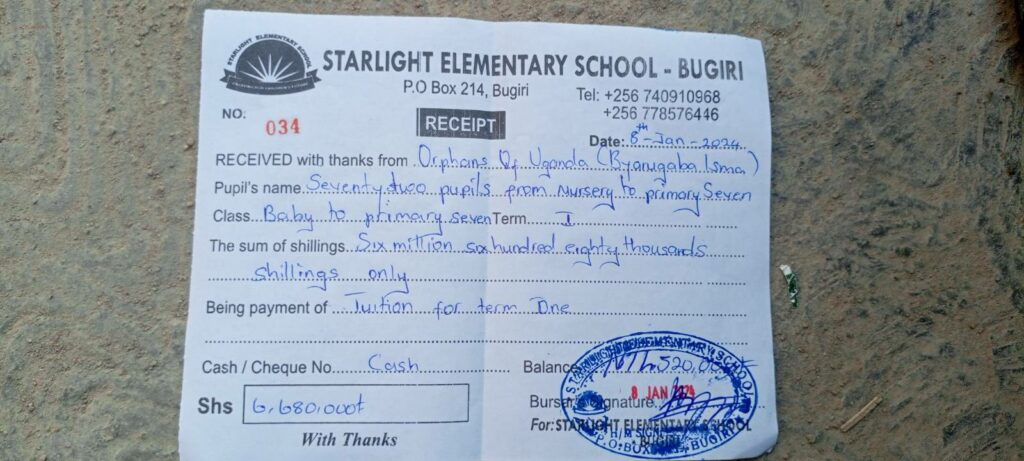 STARLIGHT ELEMENTARY SCHOOL
STARLIGHT ELEMENTARY SCHOOL - BUGIRI
P.O Box 214, Bugiri
Tel: +256 740910968
+256 778576446
NO: 034
RECEIPT
Date: 8th-Jan-2024
RECEIVED with thanks from Orphans Of Uganda (Byarugaba Isma)
Pupil's name Seventy two pupils from Nursery to primary Seven
Class Baby to primary seven Term I
The sum of shillings Six million six hundred eighty thousands
shillings only
Being payment of Tuition for term One
Cash / Cheque No. Cash Balance 520,000
Shs 6,680,000
Bursar's Signature
8 JAN
For: STARLIGHT ELEMENTARY SCHOOL
BUGIRI
With Thanks